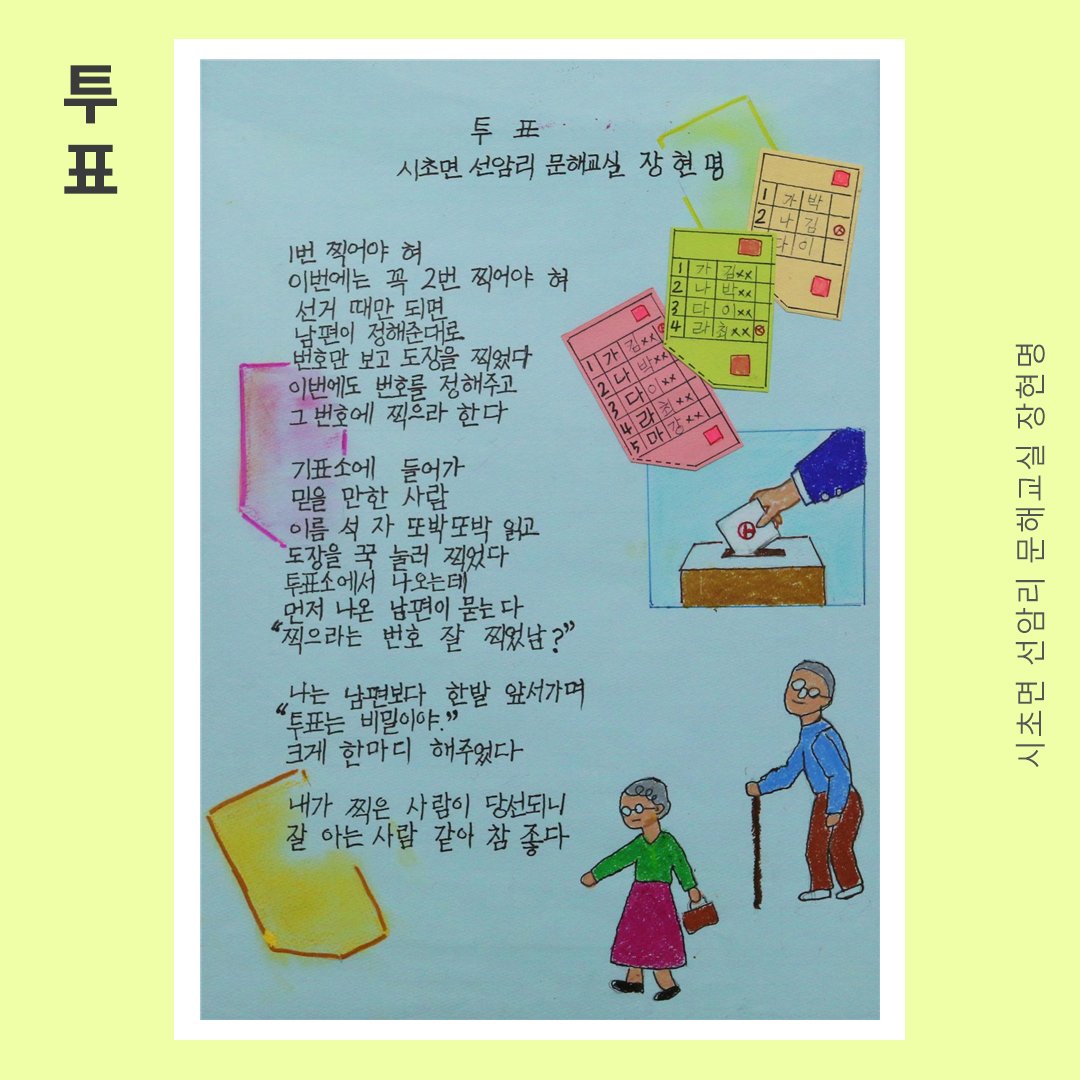 투표
투 표
시초면 선암리 문해교실 장현명
1번 찍어야 혀
이번에는 꼭 2번 찍어야 혀
선거 때만 되면
남편이 정해준대로
번호만 보고 도장을 찍었다
이번에도 번호를 정해주고
그 번호에 찍으라 한다
기표소에 들어가
믿을 만한 사람
이름 석 자 또박또박 읽고
도장을 꾹 눌러 찍었다
투표소에서 나오는데
먼저 나온 남편이 묻는다
“찍으라는 번호 잘 찍었남?”
나는 남편보다 한발 앞서가며
“투표는 비밀이야.”
크게 한마디 해주었다
내가 찍은 사람이 당선되니
잘 아는 사람 같아 참 좋다
1 가 박
2 나 김
다 이
1 가 김××
2 나 박××
3 다 이××
4 라 최××
1 가 김××
2 나 박××
3 다 이××
4 라 최××
5 마 강××
시초면 선암리 문해교실 장현명